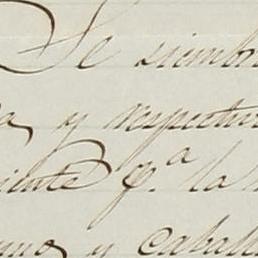 Se siembr
a y respectiv
iente pª la
mo y caball